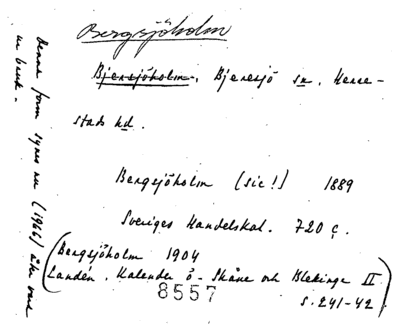 Bergsjöholm
Bjersjöholm, Bjeresjö sn. Herre-
stads hd.
Bergsjöholm (sic!) 1889
Sveriges Handelskal. 720 c.
(Bergsjöholm 1904
Landén. Kalender ö. Skåne och Blekinge II
s. 241-42)
8557
Denna form synes nu (1966) åter vara
ur bruk.